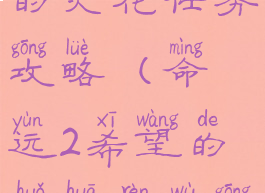 的火花任务
gōng lüè mìng
攻略（命
yùn xī wàng de
运2希望的
huǒ huā rèn wù gōng